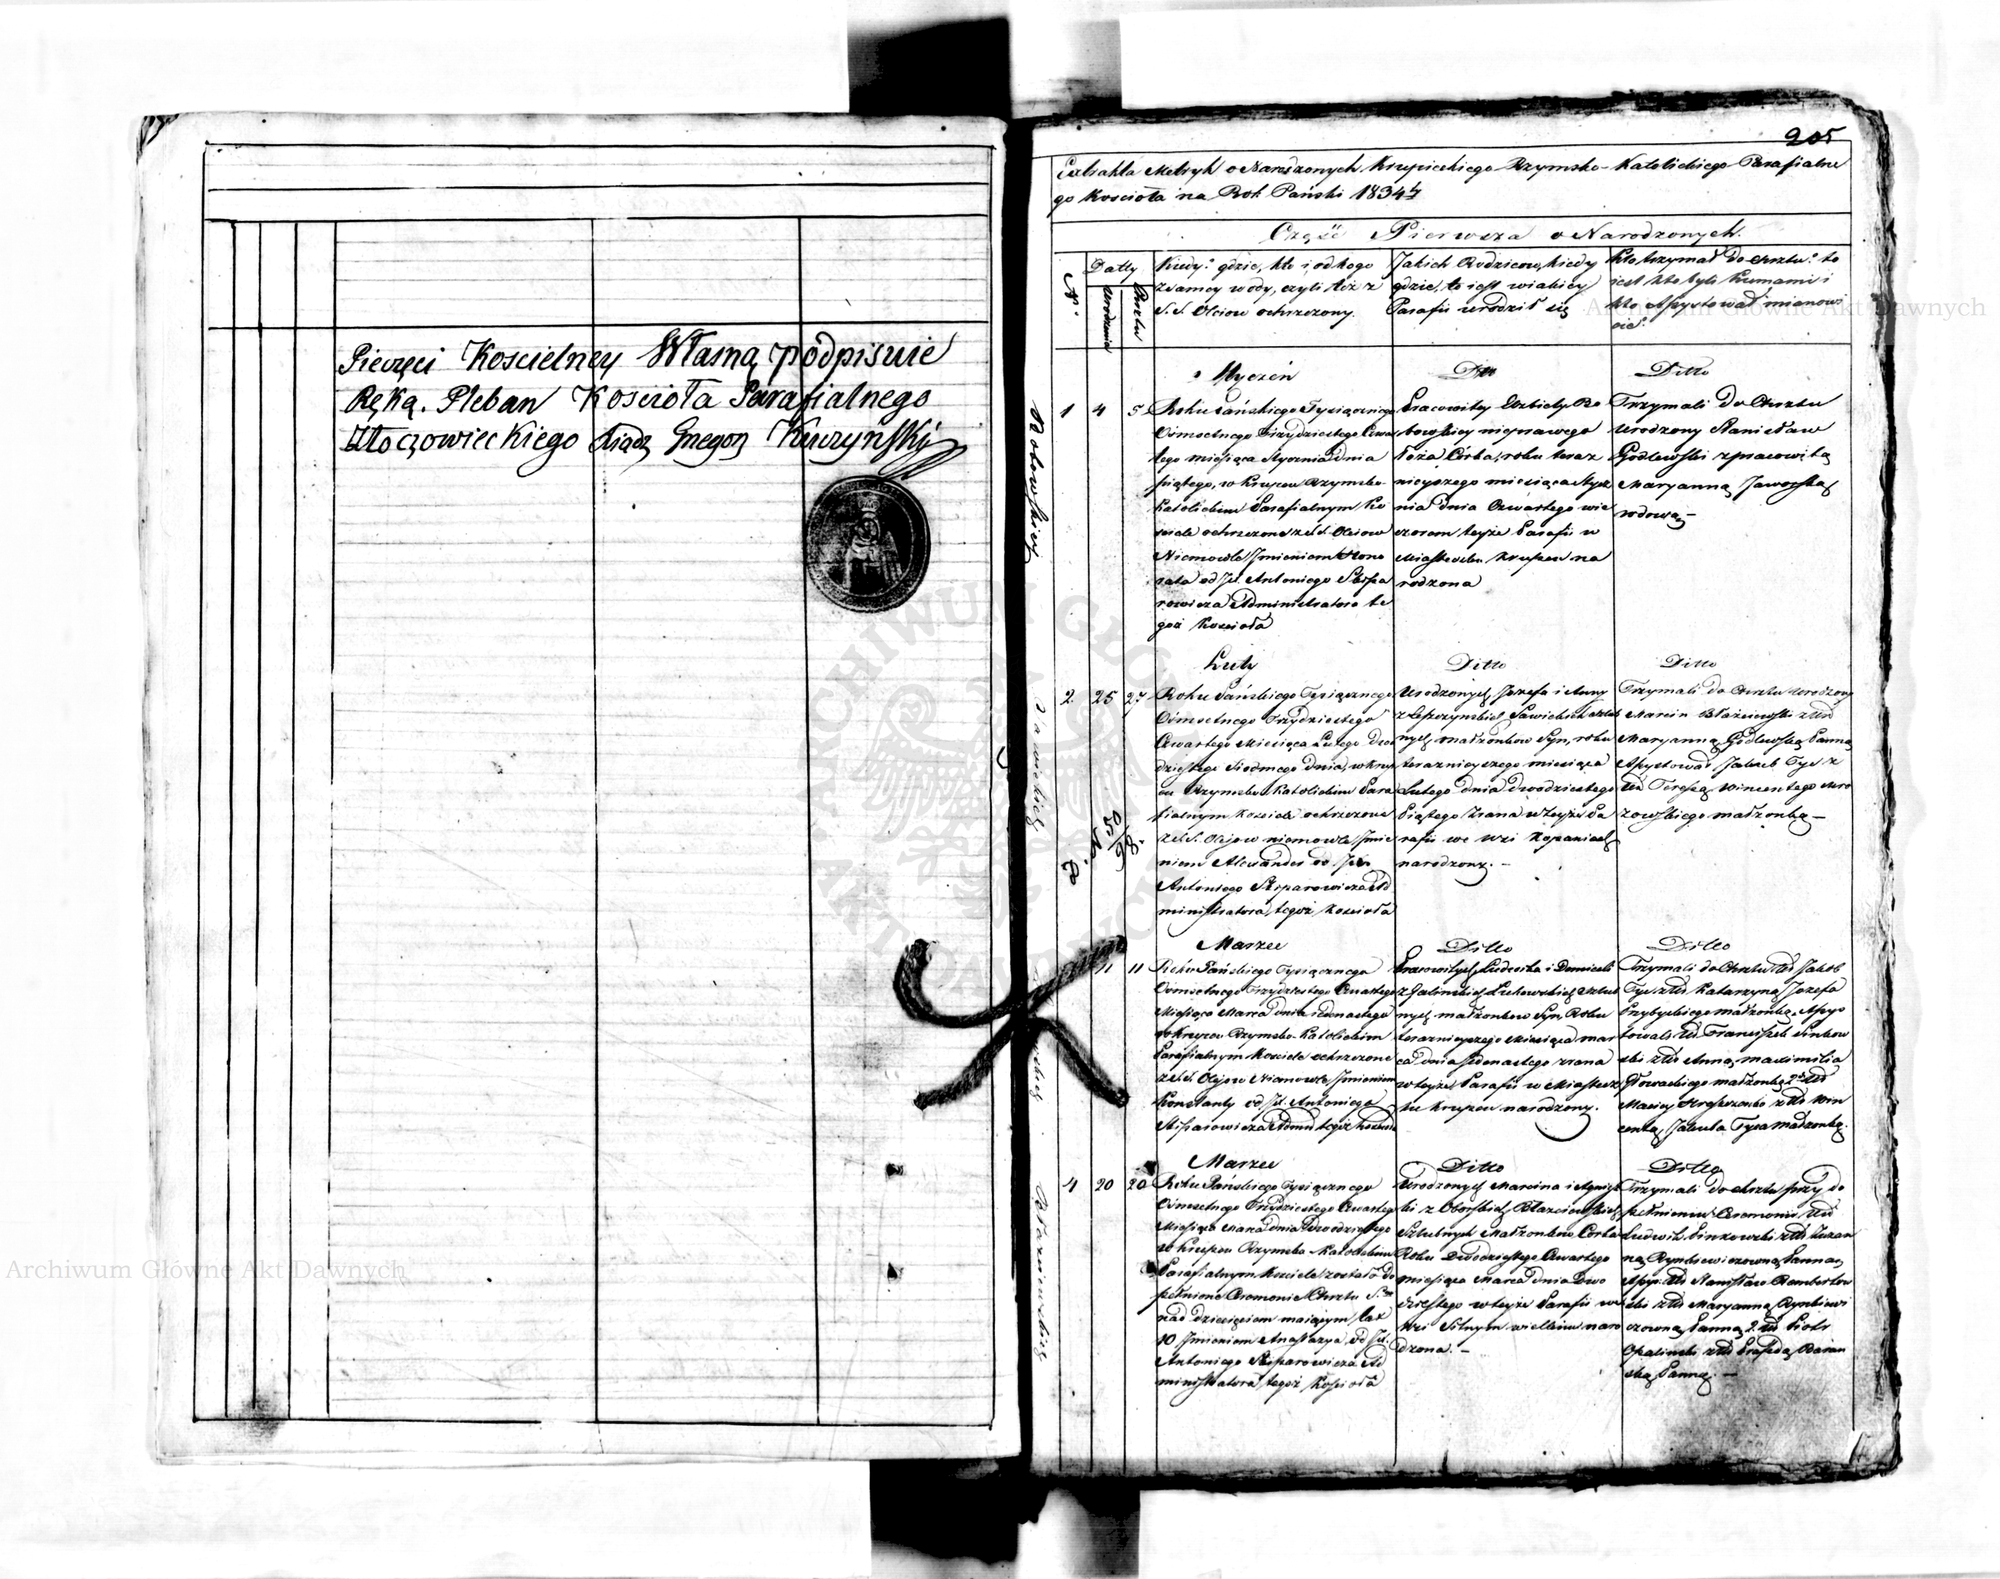 Pieczęci Koscielney Własną podpisuie
Ręką. Pleban Kościoła Parafialnego
Złoczowieckiego Xiądz Gregorz Kuczyński
205
Extrakta Metryk o Narodzonych Krupieckiego Rzymsko-Katolickiego Parafialne
go Kościoła na Rok Pański 1834
Część Pierwsza o Narodzonych.
N.
Datty
Urodzenia
Chrztu
Kiedy? gdzie, kto i od kogo
z samey wody, czyli też z
S.S. Oleiow ochrzczony.
Jakich Rodzicow, kiedy
gdzie, to iest w iakiey
Parafii urodził się
Kto trzymał do chrztu? to
iest kto byli Kumami i
kto Assystował mianowi
cie?
Styczeń
Ditto
Ditto
1 4 5
Roku Pańskiego Tysiącznego
Osmsetnego Trzydziestego Czwar
tego miesiąca Stycznia dnia
piątego, w Krupcu Rzymsko-
Katolickim Parafialnym Ko
ściele ochrzczone z S.S. Oleiow
Niemowle Imieniem Hono
rata od Jx. Antoniego Szipa
rowicza Administratora te
goż Kościoła
Pracowitey Elżbiety Bo
bowskiey nieprawego
Łoża Córka, roku teraz
nieyszego miesiąca Stycz
nia dnia Czwartego wie
czorem teyże Parafii w
Miasteczku Krupcu na
rodzona
Trzymali do Chrztu
Urodzony Stanisław
Godlewski z pracowitą
Maryanną Jaworską
rodową
Bobowskiey
Luty
Ditto
Ditto
2. 25 27
Roku Pańskiego Tysiącznego
Osmsetnego Trzydziestego
Czwartego Miesiąca Lutego Dwu
dziestego Siodmego dnia, w Krup
cu Rzymsko Katolickim Para
fialnym Kościele ochrzczone
z S.S. Olejow niemowle Imie
niem Alexander od Jx.
Antoniego Sziparowicza Ad
ministratora, tegoż Kościoła
Urodzonych Jozefa i Anny
z Leszczynskich Sawickich szlub
nych małżonkow Syn, roku
teraznieyszego miesiąca
Lutego dnia dwudziestego
Piątego zrana w teyże Pa
rafii we Wsi Kopaniach
narodzony.
Trzymali do Chrztu Urodzony
Marcin Błażeiewski z Ur
Maryanną Godlewską Panną
Assystował Jakub Tys z
Ur Teressą Wincentego Mro
zowskiego małżonką
Sawickich
Marzec
Ditto
Ditto
11 11
Roku Pańskiego Tysiącznego
Osmsetnego Trzydziestego Czwartego
Miesiąca Marca dnia iedenastego
w Krupcu Rzymsko-Katolickim
Parafialnym Kościele ochrzczone
z S.S. Olejow Niemowle Imieniem
Konstanty od Jx. Antoniego
Sziparowicza Admi: tegoż Kościoła
Pracowitych Ludwika i Domiceli
z Galinskich Żuchowskich szlub
nych małżonkow Syn, Roku
teraznieyszego miesiąca mar
ca dnia Jedenastego zrana
w teyże Parafii w Miastecz
ku Krupcu narodzony.
Trzymali do Chrztu Ur Jakób
Tys z Ur Katarzyną Jozefa
Przybyckiego małżonką, Assys
towali Ur Franciszek Sinkow
ski z Ur Anną, maximilia
Głowackiego małżonką 2o Ur
Maciey z Ur Win
centą Jakuba Tysa małżonką.
Marzec
Ditto
Ditto
4 20 20
Roku Pańskiego Tysiącznego
Osmsetnego Trzydziestego Czwartego
Miesiąca Marca dnia Dwudziestego
w Krupcu Rzymsko-Katolickim
Parafialnym Kościele zostało do
pełnione Ceremonie Chrztu S.go
nad dziecięciem maiącym lat
10 Imieniem Anastazya, od Jx.
Antoniego Sziparowicza Ad
ministratora tegoż Kościoła
Urodzonych Marcina i Agniesz
ki z Oborskich Błazeiewskich
Szlubnych Małżonkow Corka
Roku Dwudziestego Czwartego
miesiąca Marca dnia Dwu
dziestego w teyże Parafii we
Wsi Sitnym wielkim naro
dzona.
Trzymali do chrztu przy do
pełnieniu Ceremonii Ur
Ludwik Sinkowski z Ur Zuzan
ną Rynkiewiczowną Panną
Assys: Ur Stanisław Rembertow
ski z Ur Maryanną Rynkiewi
czowną Panną 2. Ur Piotr
Opalinski z Ur Praxedą Baran
ską Panną.
Błazeiewskich
Archiwum Główne Akt Dawnych
Archiwum Główne Akt Dawnych